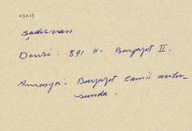 Şadırvan
Devri: 891 H. Bayazıt II.
Amasya: Bayazıt Camii avlu-
sunda.